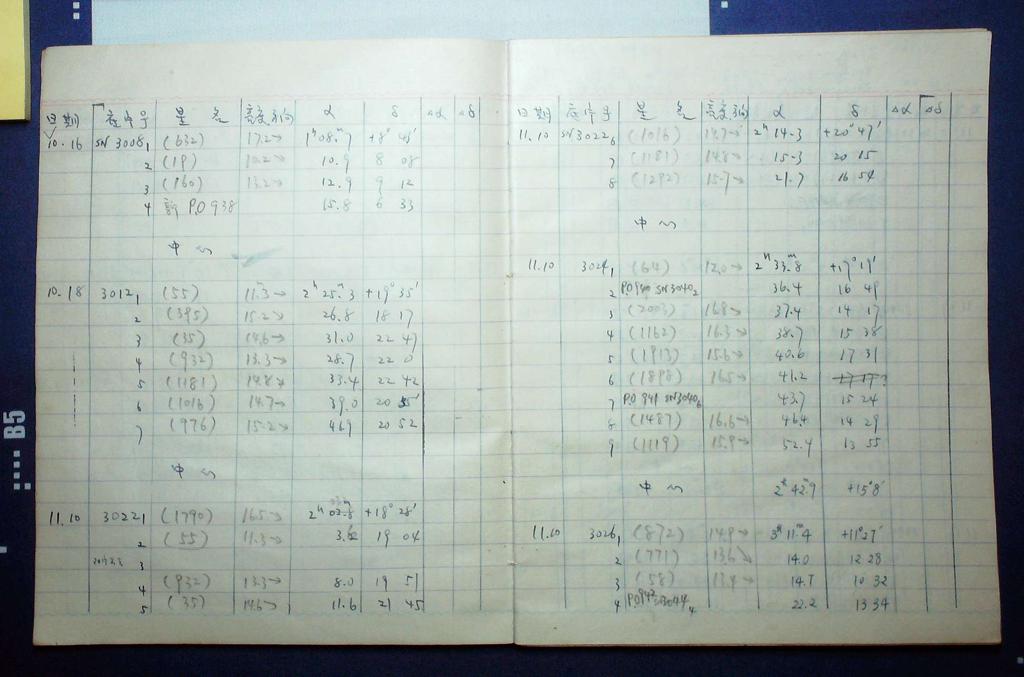 日期 底片号 星名 亮度方向 α δ Δα Δδ
10.16 SN 3008₁ (632) 17.2→ 1ʰ08.ᵐ7 +8° 43′
2 (19) 10.2→ 10.9 8 08
3 (160) 13.2→ 12.9 9 12
4 新 P.O 938 15.8 6 33
中心
10.18 3012₁ (55) 11.ᵐ3→ 2ʰ 25.ᵐ3 +19° 35′
2 (395) 15.2→ 26.8 18 17
3 (35) 14.6→ 31.0 22 47
4 (932) 13.3→ 28.7 22 0
5 (1181) 14.8→ 33.4 22 42
6 (1016) 14.7→ 39.0 20 55′
7 (776) 15.2→ 46.9 20 52
中心
11.10 3022₁ (1790) 16.5→ +18° 28′
2 (55) 11.3→ 3.6 19 04
3
4 (932) 13.3→ 8.0 19 51
5 (35) 14.6→ 11.6 21 45
日期 底片号 星名 亮度方向 α δ Δα Δδ
11.10 SN 3022₆ (1016) 14.7→ 2ʰ 14.3 +20° 47′
7 (1181) 14.8→ 15.3 20 15
8 (1292) 15.7→ 21.7 16 54
中心
11.10 3024₁ (64) 12.0→ 2ʰ 33.ᵐ8 +17° 19′
2 P.O 940 SN3040₂ 36.4 16 49
3 (2003) 16.8→ 37.4 14 17
4 (1162) 16.3→ 38.7 15 38
5 (1913) 15.6→ 40.6 17 31
6 (1898) 16.5→ 41.2 17 17
7 P.O 941 SN3040₆ 43.7 15 24
8 (1487) 16.6→ 46.4 14 29
9 (1119) 15.9→ 52.4 13 55
中心 2ʰ 42.ᵐ9 +15°8′
11.10 3026₁ (872) 14.9→ 3ʰ 11.ᵐ4 +11°27′
2 (771) 13.6 14.0 12 28
3 (58) 13.4→ 14.7 10 32
4 P.O 942 SN3044₄ 22.2 13 34
B5